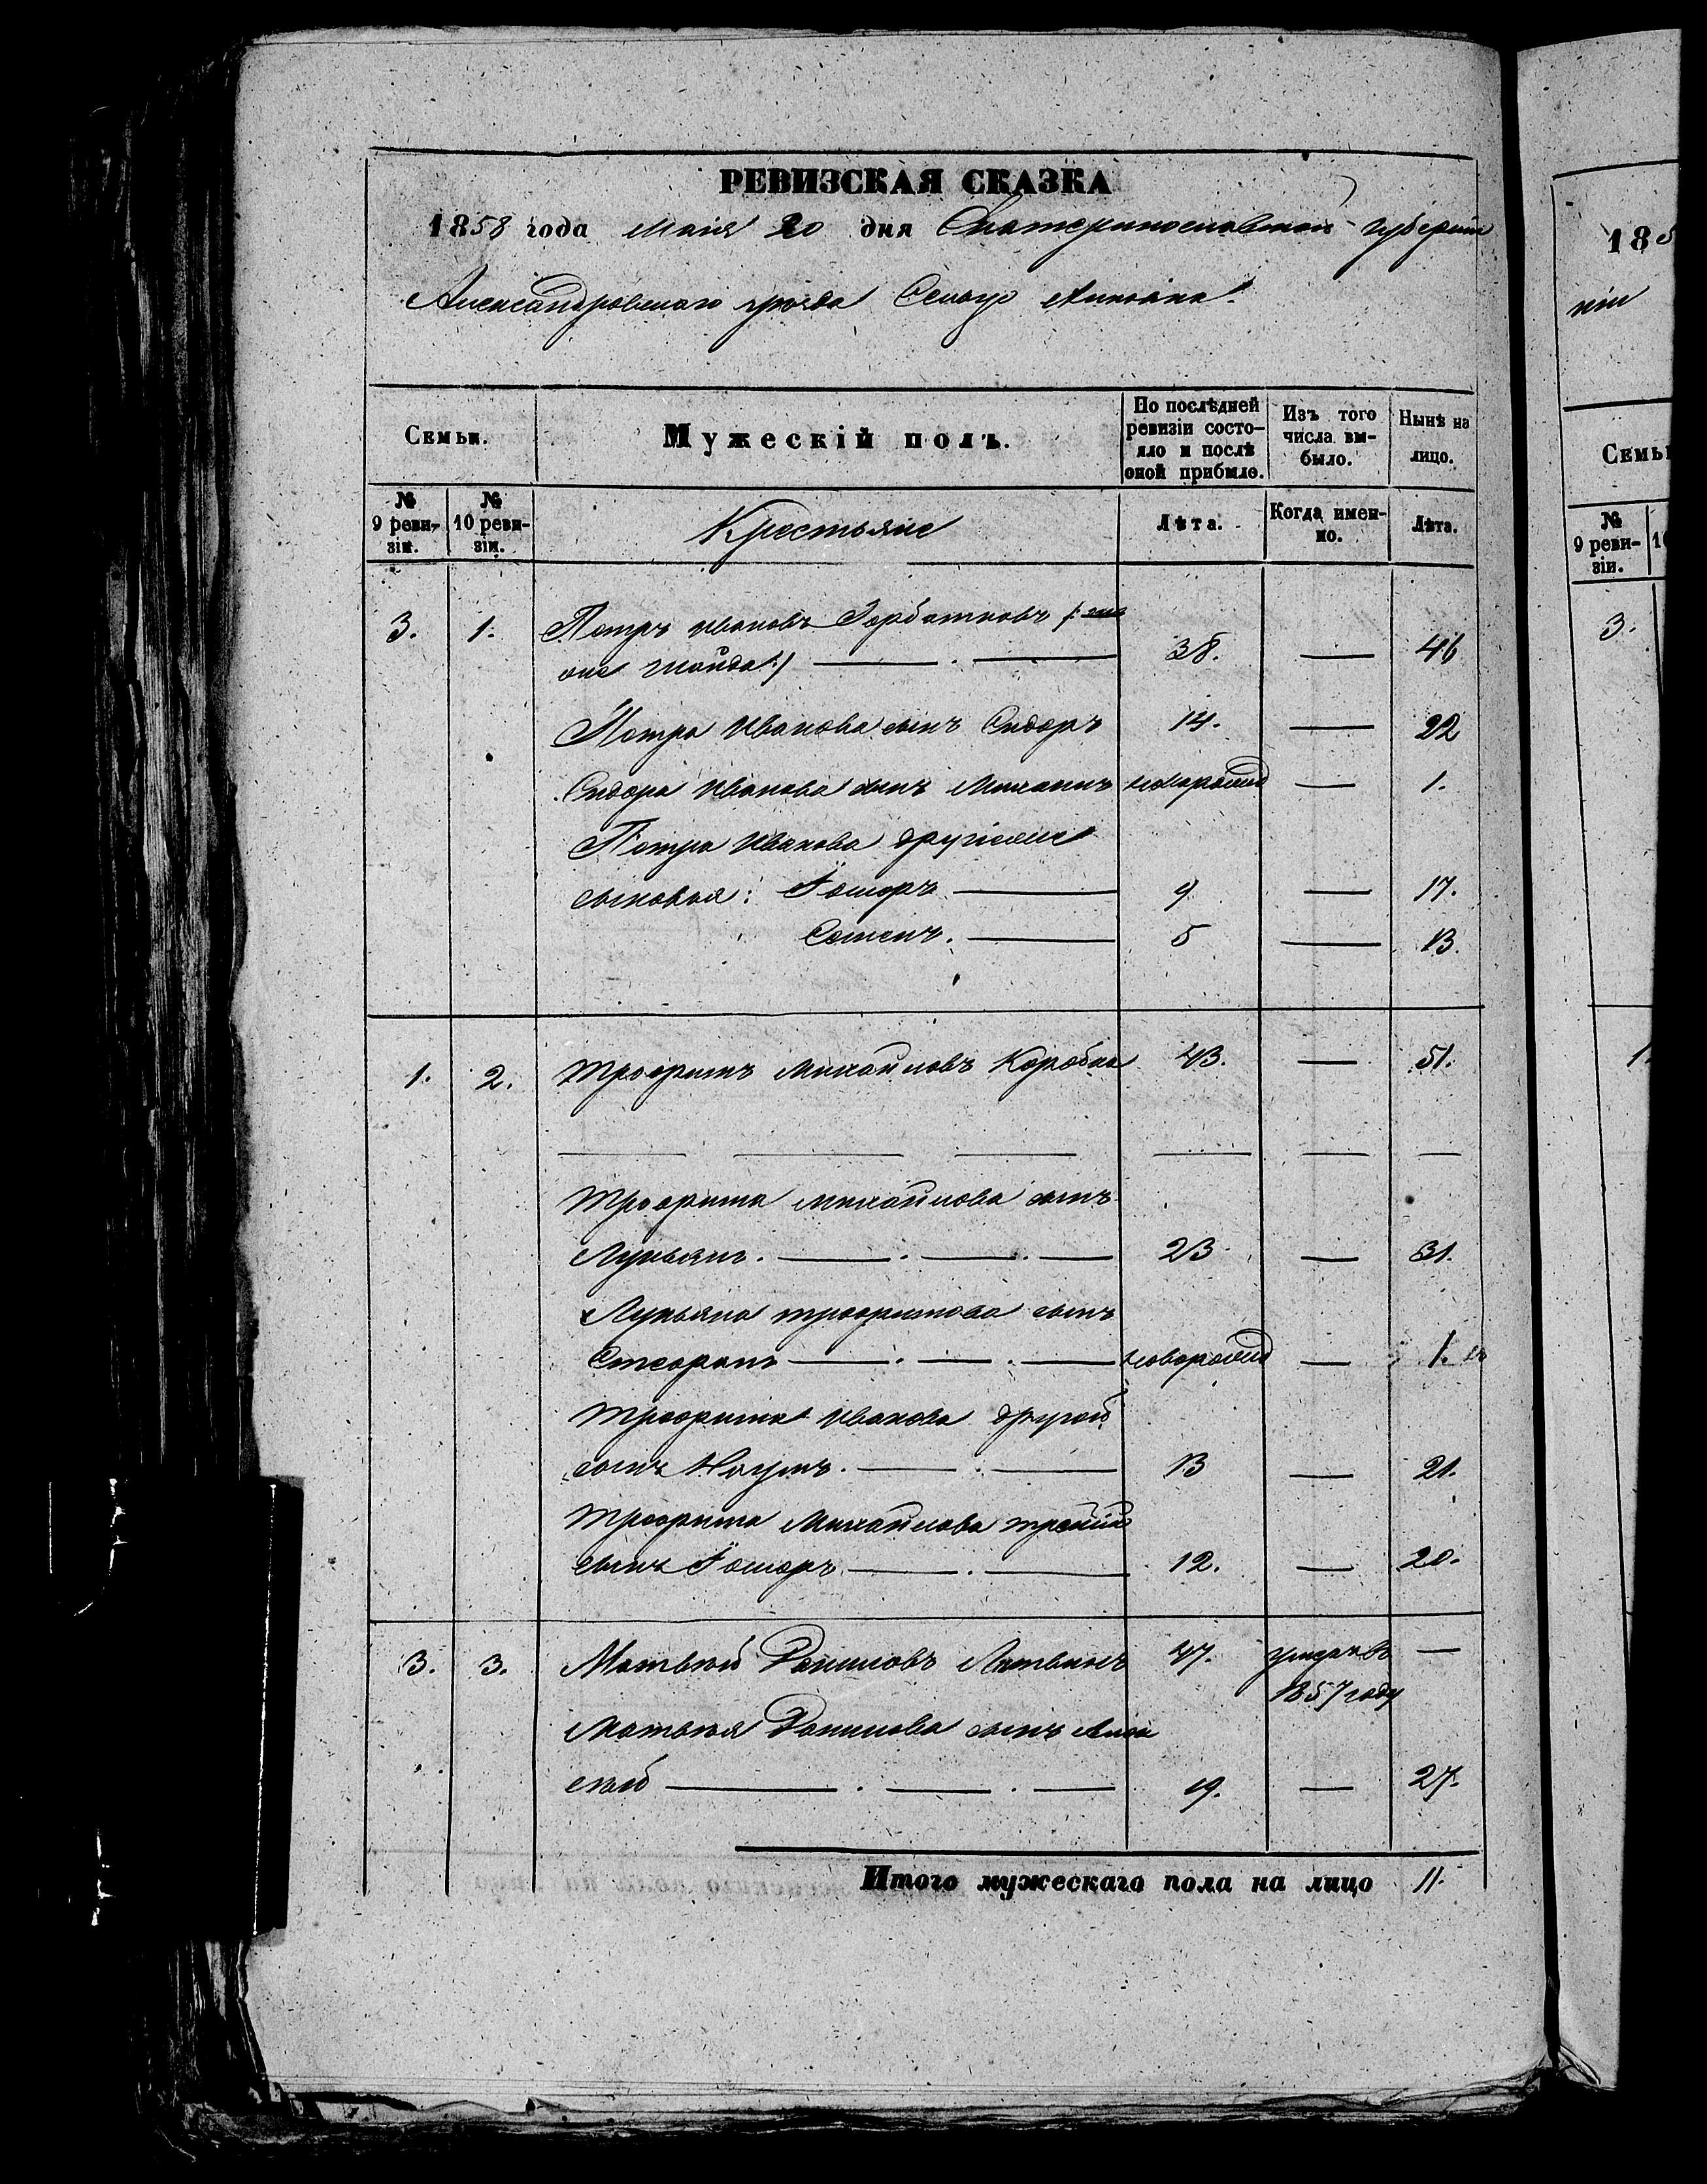 РЕВИЗСКАЯ СКАЗКА
1858 года Маія 20 дня Екатеринославской губерніи
Александровскаго уѣзда Сельцо
Семьи.
Мужескій полъ.
По послѣдней ревизіи состояло и послѣ оной прибыло.
Изъ того числа выбыло.
Нынѣ на лицо.
№ 9 ревизіи.
№ 10 ревизіи.
Крестьяне
Лѣта.
Когда именно.
Лѣта.
3. 1. Петръ Ивановъ Горбатковъ /:
оне :/ — . — 38. — 46
Петра Иванова сынъ Сидоръ 14. — 22
Сидора Иванова сынъ Михаилъ новорожд — 1.
Петра Иванова другіе
сыновья: Ѳедоръ — 9 — 17.
Семенъ. — 5 — 13.
1. 2. Трофимъ Михайловъ Коробка 43. — 51.
— — — — — —
Трофима Михайлова сынъ
Лукьянъ. — . — . — 23 — 31.
Лукьяна Трофимова сынъ
Стефанъ — . — . — новорожд — 1.
Трофима Иванова другой
сынъ Наумъ. — . — 13 — 21.
Трофима Михайлова третій
сынъ Ѳедоръ. — . — 12. — 20.
3. 3. Матвѣй Даниловъ Литвинъ 47. умеръ въ —
1857 году
Матвѣя Данилова сынъ Алек
сѣй — . — . — 19. — 27.
Итого мужескаго пола на лицо 11.
185
ніи
Семьи
№ 9 ревизіи.
10
3.
1.